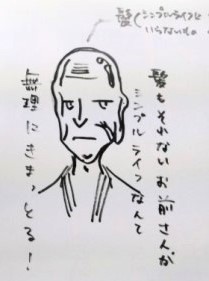 髪(シンプルライフに
いらないもの。
髪もそれないお前さんが
シンプルライフなんて
無理にきまっとる！